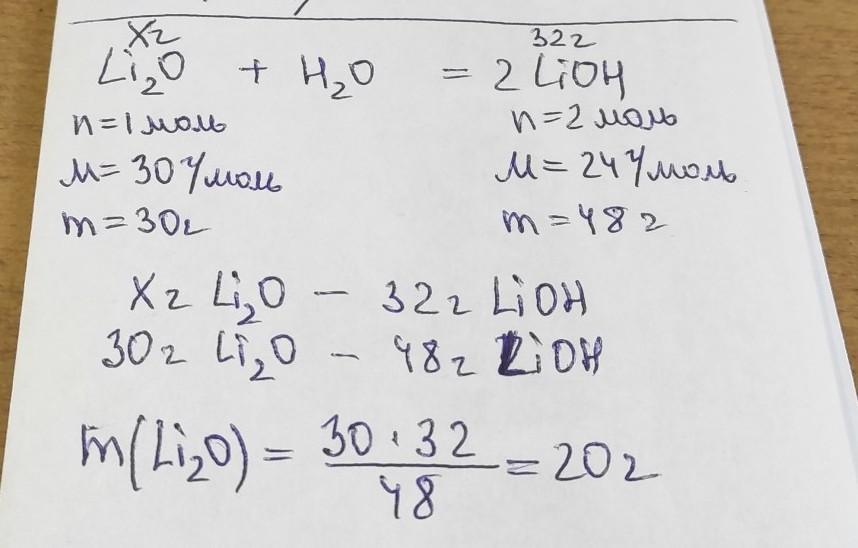 Xг 32г
Li₂O + H₂O = 2 LiOH
n = 1 моль n = 2 моль
M = 30 г/моль M = 24 г/моль
m = 30г m = 48 г
Xг Li₂O – 32г LiOH
30г Li₂O – 48г LiOH
m(Li₂O) = 30 · 32 / 48 = 20г